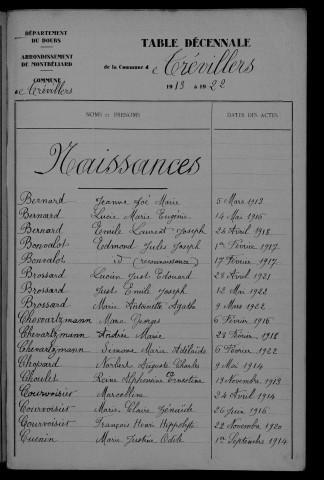 DÉPARTEMENT
DU DOUBS
ARRONDISSEMENT
DE MONTBÉLIARD
COMMUNE
de Trévillers
TABLE DÉCENNALE
de la Commune de Trévillers
1913 à 1922
NOMS ET PRÉNOMS DATES DES ACTES
Naissances
Bernard Jeanne Marie 5 Mars 1913
Bernard Lucie Marie Eugénie 14 Mai 1916
Bernard Emile Laurent Joseph 26 Avril 1918
Bonvalot Edmond Jules Joseph 1er Février 1917
Bonvalot id (reconnaissance) 17 Février 1917
Brossard Lucien Just Edouard 28 Avril 1921
Brossard Just Emile Joseph 12 Mai 1922
Brossard Marie Antoinette Agathe 9 Mars 1922
Chevartzmann 6 Février 1916
Chevartzmann Andrée Marie 28 Février 1918
Chevartzmann Simone Marie Adélaïde 6 Février 1922
Chopard Norbert Auguste Charles 9 Mai 1914
Choulet Alphonsine Ernestine 13 Novembre 1913
Courvoisier Marcelline 24 Avril 1914
Courvoisier Marie Claire Zénaïde 26 Juin 1916
Courvoisier François Henri Hippolyte 22 Novembre 1920
Cuenin Marie Justine Odile 1er Septembre 1914